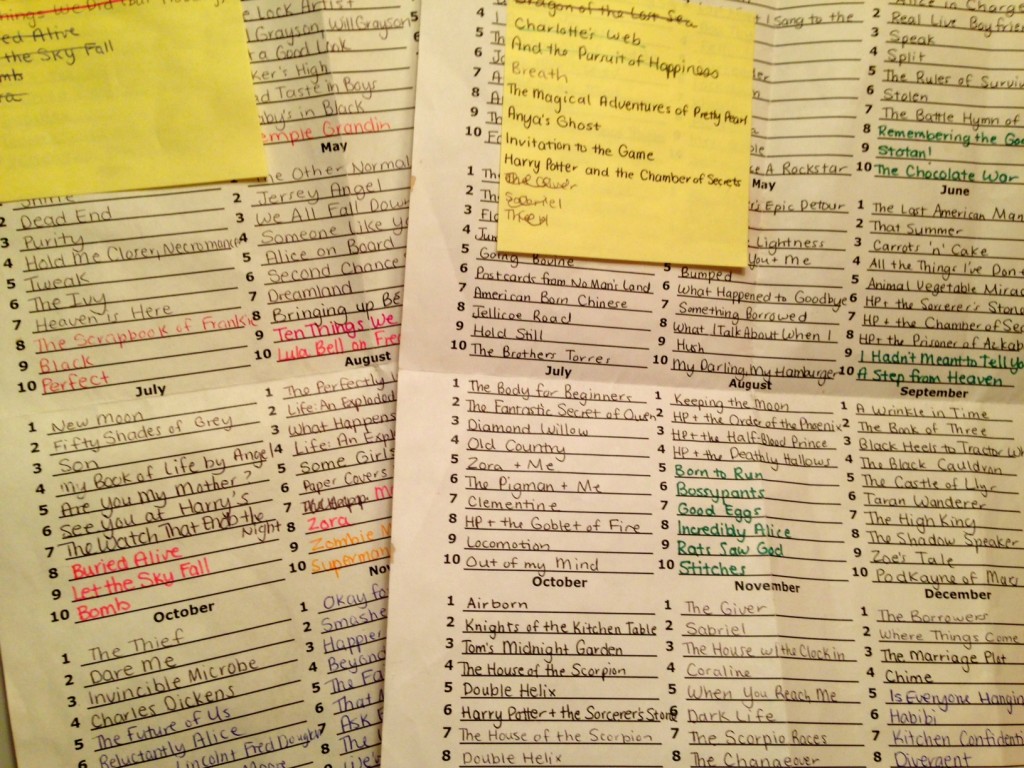 the Sky Fall
Grayson, Will Grayson
a Good Link
ker's High
d Taste in Boys
by's in Black
emple Grandin
May
The Other Normal
Jersey Angel
We All Fall Down
Someone like Yo
Alice on Board
Second Chance
Dreamland
Bringing up Bé
Ten Things We
Lula Bell on
2 Dead End
3 Purity
4 Hold Me Closer, Necromancer
5 Tweak
6 The Ivy
7 Heaven is Here
8 The Scrapbook of Frankie
9 Black
10 Perfect
July
1 New Moon
2 Fifty Shades of Grey
3 Son
4 My Book of Life by Angel
5 Are You My Mother?
6 See You at Harry's
7 The Watch That Ends the Night
8 Buried Alive
9 Let the Sky Fall
10 Bomb
August
1 The Perfectly
2 Life: An Exploded
3 What Happens
4 Life: An Expl
5 Some Girls
6 Paper Covers
8 Zora
9 Zombie
10 Superman
October
1 The Thief
2 Dare Me
3 Invincible Microbe
4 Charles Dickens
5 The Future of Us
6 Reluctantly Alice
Lincoln, Fred Dougla
Nov
1 Okay fo
2 Smashe
3 Happier
4 Beyond
5 The Fa
6 That
7 Ask
Dragon of the Lost Sea
Charlotte's Web
And the Pursuit of Happiness
Breath
The Magical Adventures of Pretty Pearl
Anya's Ghost
Invitation to the Game
Harry Potter and the Chamber of Secrets
The Giver
Sabriel
Thief
5 Going Bovine
6 Postcards from No Man's Land
7 American Born Chinese
8 Jellicoe Road
9 Hold Still
10 The Brothers Torres
July
1 The Body for Beginners
2 The Fantastic Secret of Owen
3 Diamond Willow
4 Old Country
5 Zora + Me
6 The Pigman + Me
7 Clementine
8 HP + the Goblet of Fire
9 Locomotion
10 Out of my Mind
October
1 Airborn
2 Knights of the Kitchen Table
3 Tom's Midnight Garden
4 The House of the Scorpion
5 Double Helix
6 Harry Potter + the Sorcerer's Stone
7 The House of the Scorpion
8 Double Helix
I Sang to the
e A Rockstar
May
's Epic Detour
Lightness
You + Me
5 Bumped
6 What Happened to Goodbye
7 Something Borrowed
8 What I Talk About When I
9 Hush
10 My Darling, My Hamburger
August
1 Keeping the Moon
2 HP + the Order of the Phoenix
3 HP + the Half-Blood Prince
4 HP + the Deathly Hallows
5 Born to Run
6 Bossypants
7 Good Eggs
8 Incredibly Alice
9 Rats Saw God
10 Stitches
November
1 The Giver
2 Sabriel
3 The House w/ the Clock in
4 Coraline
5 When You Reach Me
6 Dark Life
7 The Scorpio Races
8 The Changeover
Alice in Charge
2 Real Live Boyfrien
3 Speak
4 Split
5 The Rules of Surviv
6 Stolen
7 The Battle Hymn of
8 Remembering the Goo
9 Stotan!
10 The Chocolate War
June
1 The Last American Man
2 That Summer
3 Carrots 'n' Cake
4 All the Things I've Don
5 Animal Vegetable Mirac
6 HP + the Sorcerer's Stone
7 HP + the Chamber of Sec
8 HP + the Prisoner of Azkab
9 I Hadn't Meant to Tell Yo
10 A Step from Heaven
September
1 A Wrinkle in Time
2 The Book of Three
3 Black Heels to Tractor Wh
4 The Black Cauldron
5 The Castle of Llyr
6 Taran Wanderer
7 The High King
8 The Shadow Speaker
9 Zoe's Tale
10 Podkayne of Mars
December
1 The Borrowers
2 Where Things Come
3 The Marriage Plot
4 Chime
5 Is Everyone Hangin
6 Habibi
7 Kitchen Confidenti
8 Divergent